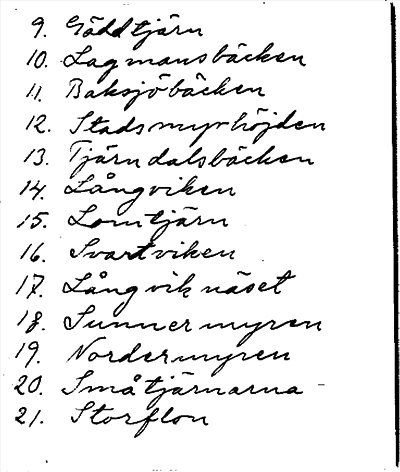 9. Gäddtjärn
10. Lagmansbäcken
11. Baksjöbäcken
12. Stadsmyrhöjden
13. Tjärndalsbäcken
14. Långviken
15. Lomtjärn
16. Svartviken
17. Långviknäset
18. Sunnermyren
19. Nordermyren
20. Småtjärnarna -
21. Storflon